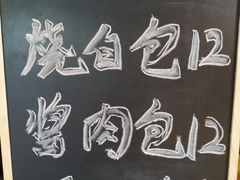 烧白包12
酱肉包12